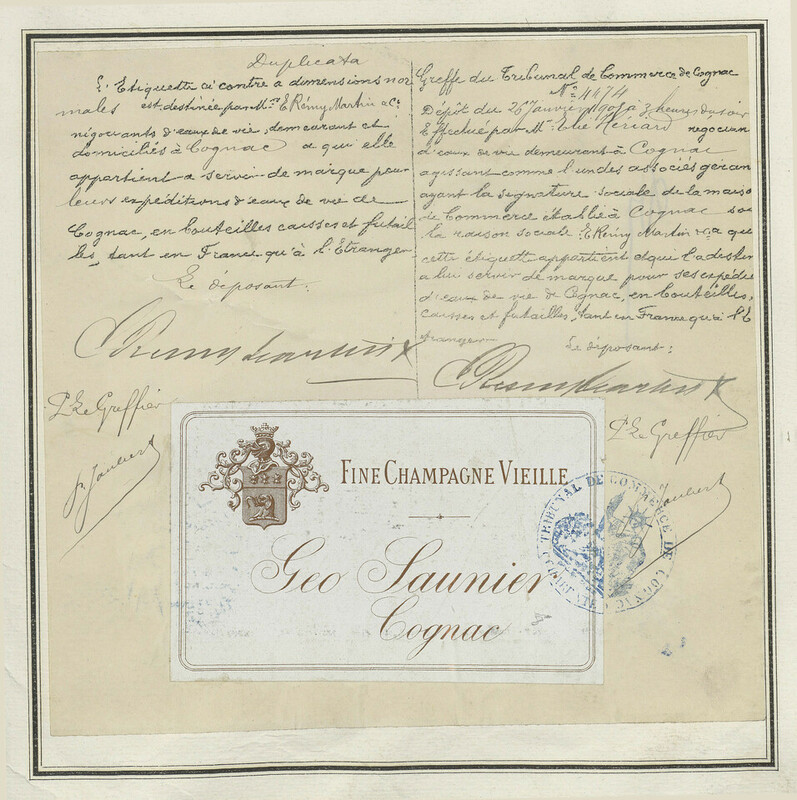 Duplicata
L'Etiquette ci contre a dimensions nor
males est destinée par Mrs E Rémy Martin & Co
négociants d'eaux de vie demeurant et
domiciliés à Cognac a qui elle
appartient a servir de marque pour
leurs expéditions d'eaux de vie de
Cognac, en bouteilles caisses et futail
les, tant en France qu'à l'Etranger
Le déposant:
E Remy Martin & Co
Pr Le Greffier
Jaulert
Greffe du Tribunal de Commerce de Cognac
No 4474
Dépôt du 26 Janvier à 3 heures du soir
Effectué par Mr Elie Hériard négocian
d'eaux de vie demeurant à Cognac
agissant comme l'un des associés géran
ayant la signature sociale de la maiso
de Commerce établie à Cognac sou
la raison sociale E Rémy Martin & Co qu
cette étiquette appartient et qu'il a destin
a lui servir de marque pour ses expédi
d'eaux de vie de Cognac, en bouteilles,
caisses et futailles, tant en France qu'à l'E
tranger
Le déposant:
E Remy Martin & Co
Pr Le Greffier
Jaulert
FINE CHAMPAGNE VIEILLE
Geo Saunier
Cognac
TRIBUNAL DE COMMERCE DE COGNAC